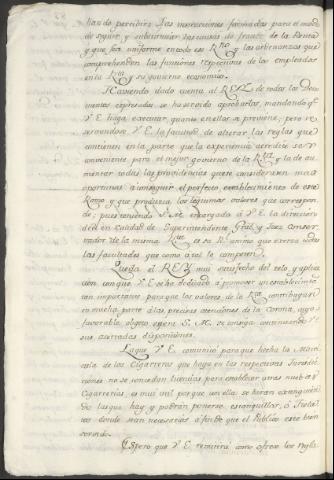 han de percibir: Las instrucciones formadas para el modo
de seguir, y substanciar las causas de fraude de la Renta
y que sea uniforme en todo ese Rno y las ordenanzas que
comprehenden las funciones respectivas de los empleados
en la Rta y su govierno economico.
Haviendo dado cuenta al REY de todos los Docu
mentos expresados se ha servido aprobarlos, mandando qe
V.E. haga executar quanto en ellos se previene; pero re
servandose a V.E. la facultad de alterar las reglas que
contienen en la parte que la experiencia acredite ser
conveniente para el mejor govierno de la Rta, y la de au
mentar todas las providencias que se consideren mas
oportunas a conseguir el perfecto establecimiento de este
Ramo y que produzca los legitimos valores que correspon
de; pues teniendo S.M. encargado a V.E. la direccion
de él en calidad de Superintendente Gral, y Juez conser
vador de la misma Rta es su Rl animo que exerza todas
las facultades que como a tal le competen.
Queda el REY mui satisfecho del zelo y aplica
cion con que V.E. se ha dedicado a promover un establecimto
tan importante para que los valores de la Rta contribuyan
en mucha parte a las precisas atenciones de la Corona, cuyo
favorable objeto espera S.M. se consiga continuando V.E.
sus acertadas disposiciones.
Lo que V.E. comunicó para que hecha la Ma
tricula de las Cigarreras que haya en las respectivas Jurisdic
ciones no se concedan licencias para establecer otras nuevas
Cigarrerias, es mui util por que con ella se harán extinguien
do las que hay y podrán ponerse, estanquillos, ó Fiela
tos donde sean necesarios a fin de que el Publico este bien
servido.
Espero que V.E. remitirá como ofrece los Regla